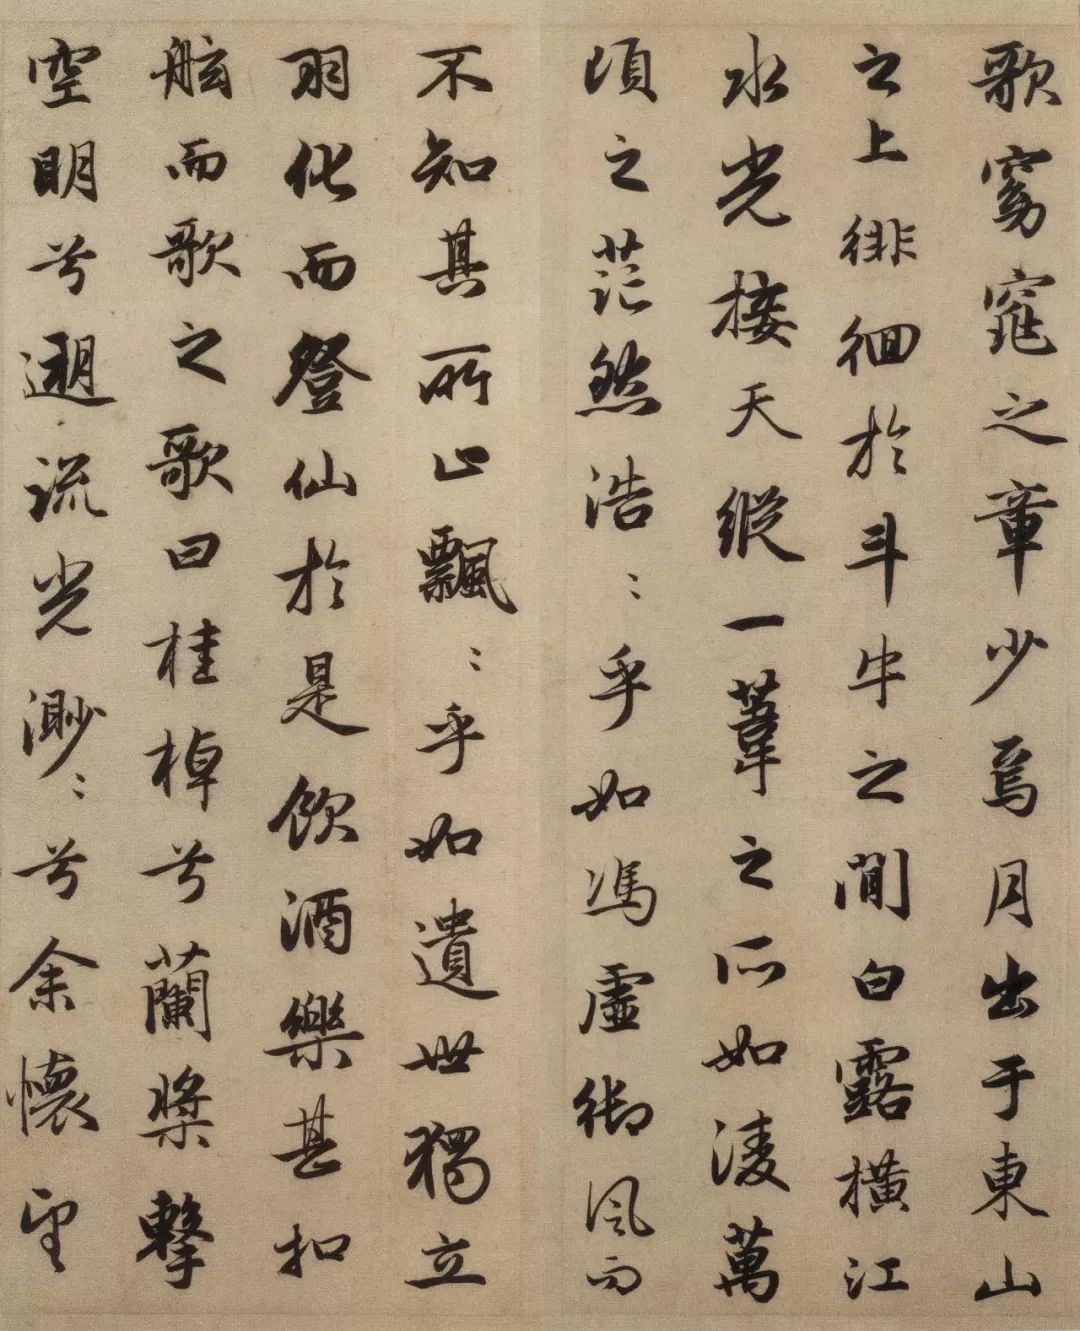 歌窈窕之章少焉月出于東山
之上徘徊於斗牛之間白露橫江
水光接天縱一葦之所如淩萬
頃之茫然浩〻乎如馮虛御風而
不知其所止飄〻乎如遺世獨立
羽化而登仙於是飲酒樂甚扣
舷而歌之歌曰桂棹兮蘭槳擊
空明兮遡流光渺〻兮余懷望